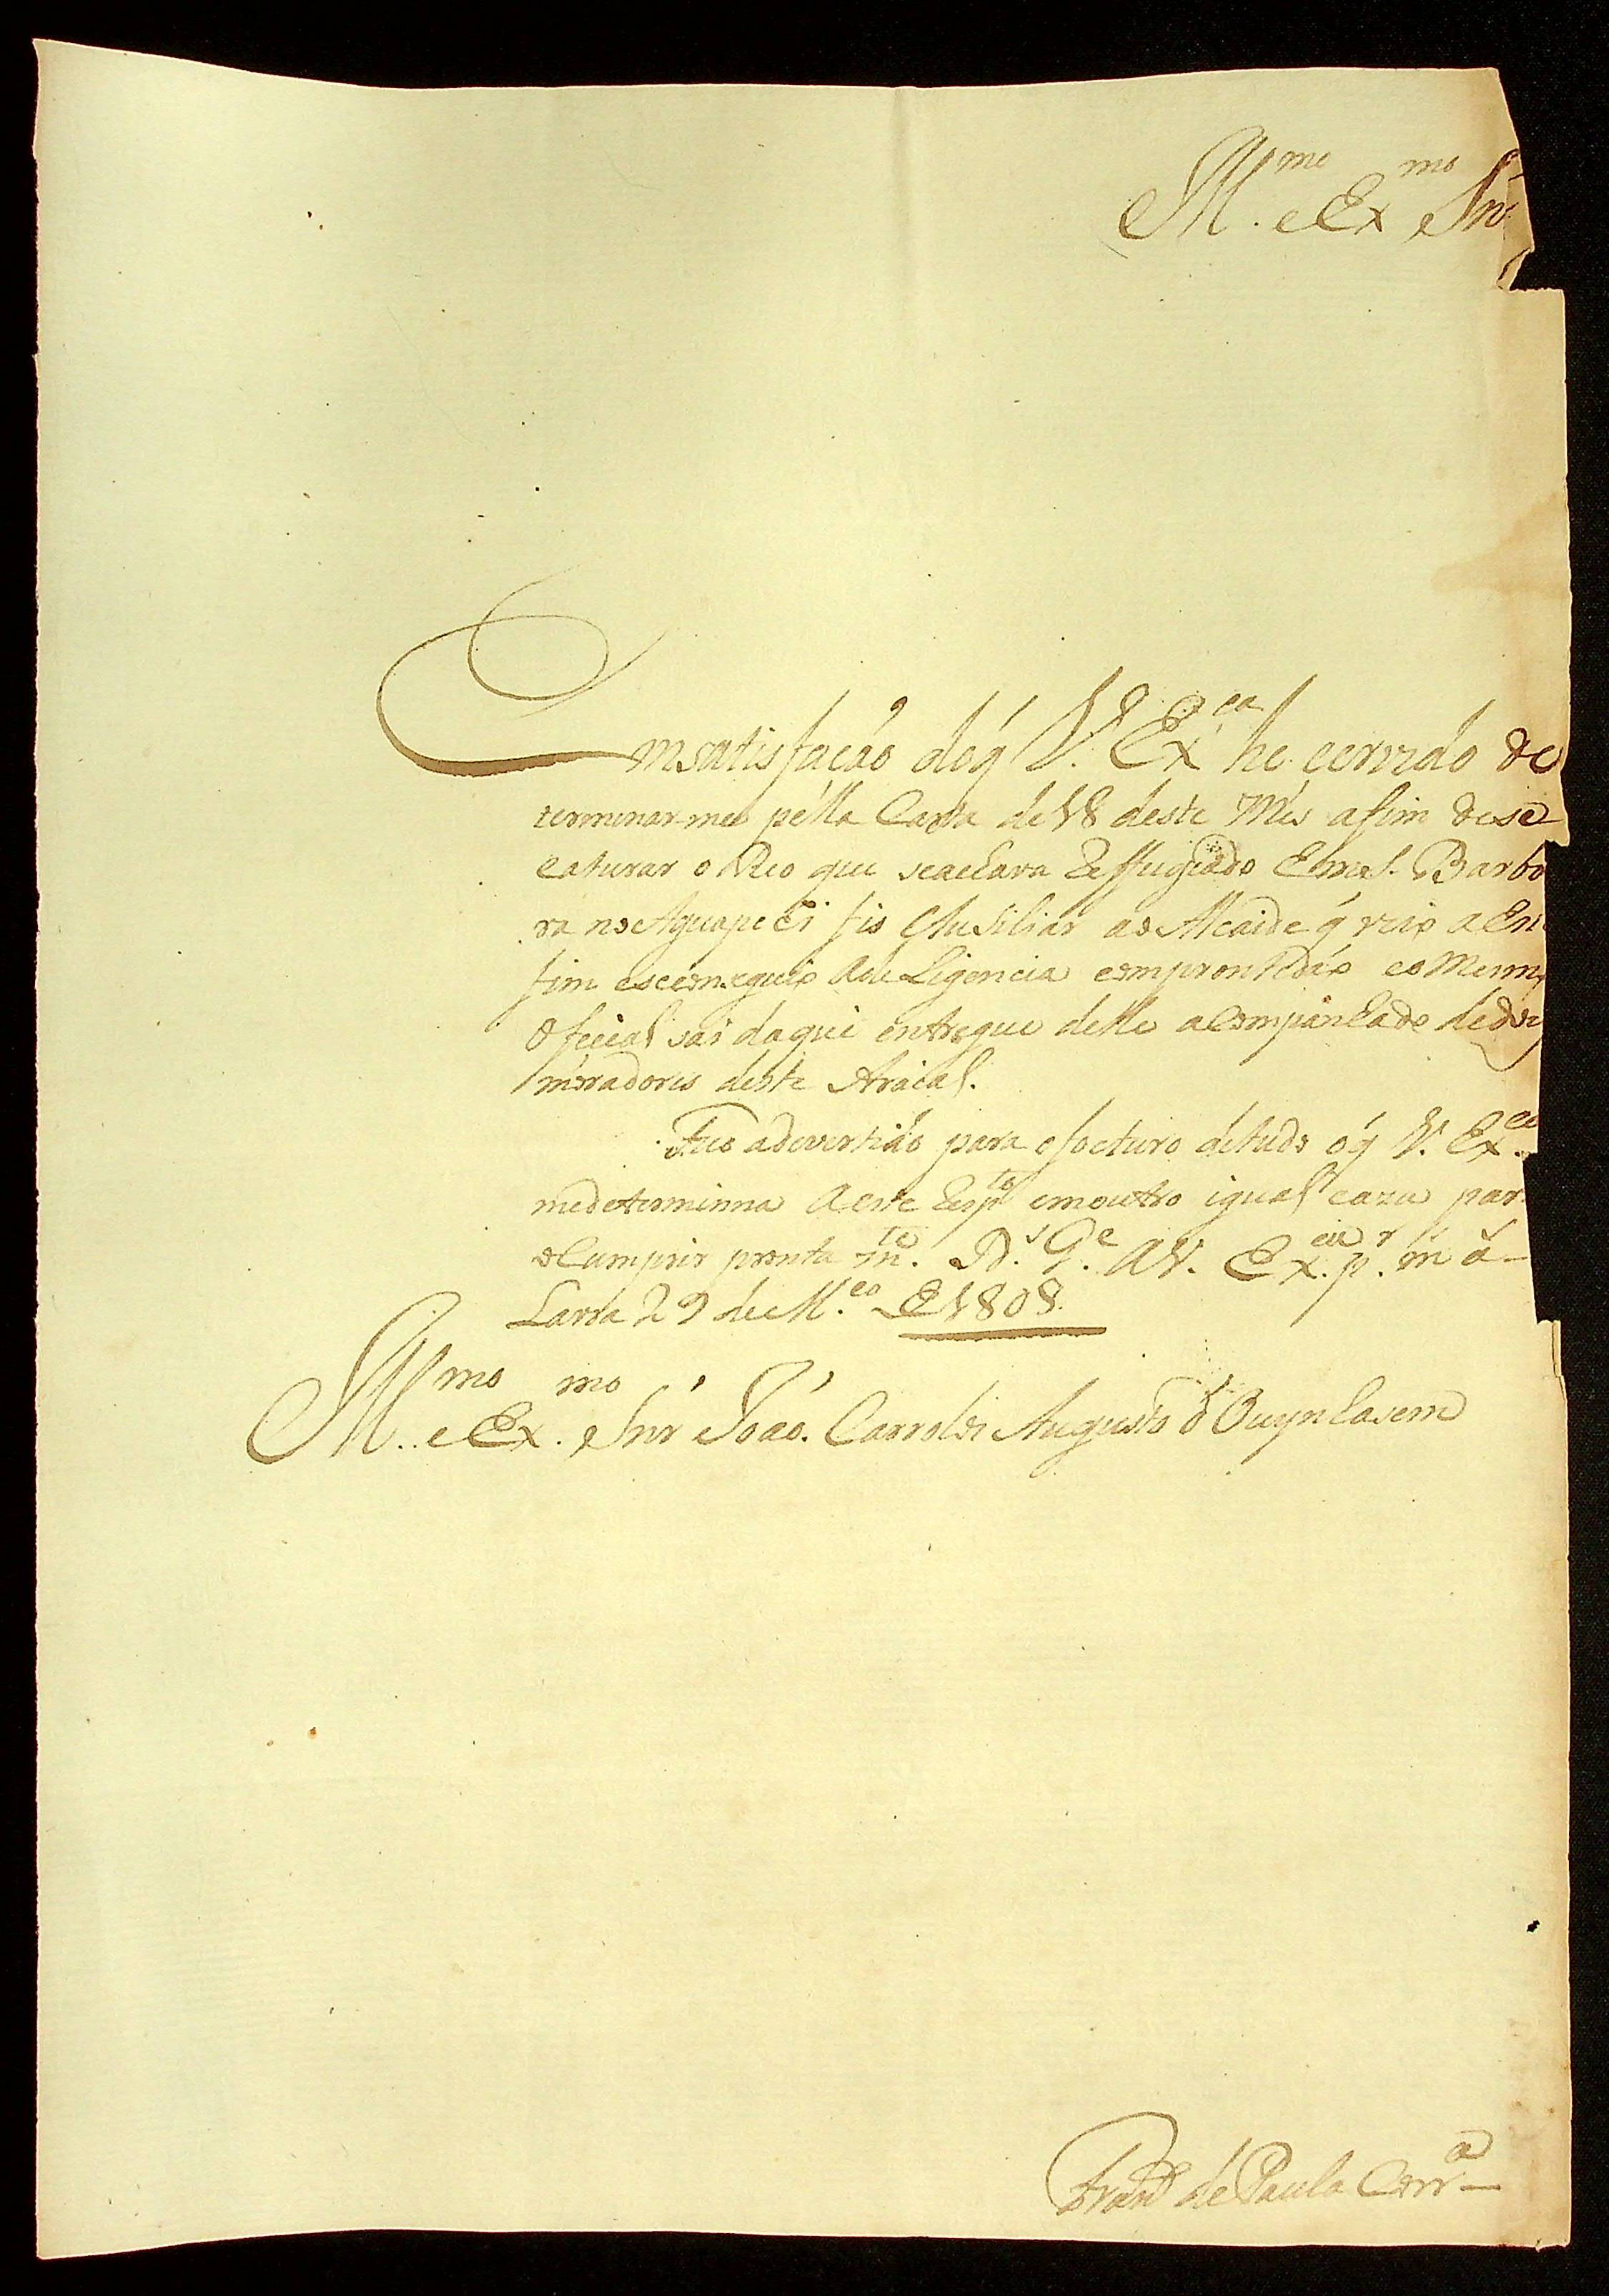 Ill.mo e Ex.mo Snr
Emsatisfacáo doq' V. Ex.ca he cervido de
terminarme pella Carta de 18 deste Mes afim dese
caturar o Reo que seachava Reffugiado Barbo
ra no Aguapeci fis Ahusiliar ao Alcaide q' veio a En
fim esceonseguio adeLigencia comprontidáo eo Mesm
Oficial sai daqui entregue delle acompanhado dedoi
moradores deste Araial.
Fico adevertido para ofocturo detudo óq' V. Ex.ca
medeterminna aeste Resp.to emoutro igual cazu par
aCumprir pronta m.te. D.s G.e a V. Ex.cia p.r m a
Larra 29 de M.co de 1808.
Ill.mo e Ex.mo Snr João Carrolos Augusto d' Ouynhasem
Fran.co de Paula Corr.a